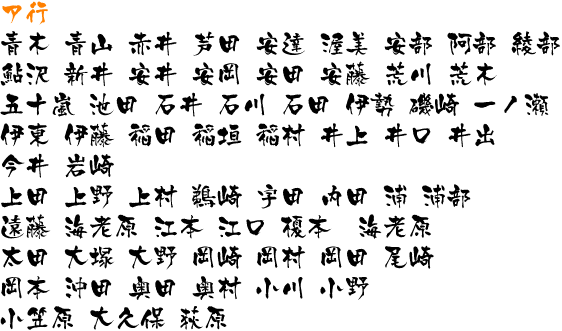 ア行
青木 青山 赤井 芦田 安達 渥美 安部 阿部 綾部
鮎沢 新井 安井 安岡 安田 安藤 荒川 荒木
五十嵐 池田 石井 石川 石田 伊勢 磯崎 一ノ瀬
伊東 伊藤 稲田 稲垣 稲村 井上 井口 井出
今井 岩崎
上田 上野 上村 鵜崎 宇田 内田 浦 浦部
遠藤 海老原 江本 江口 榎本 海老原
太田 大塚 大野 岡崎 岡村 岡田 尾崎
岡本 沖田 奥田 奥村 小川 小野
小笠原 大久保 荻原